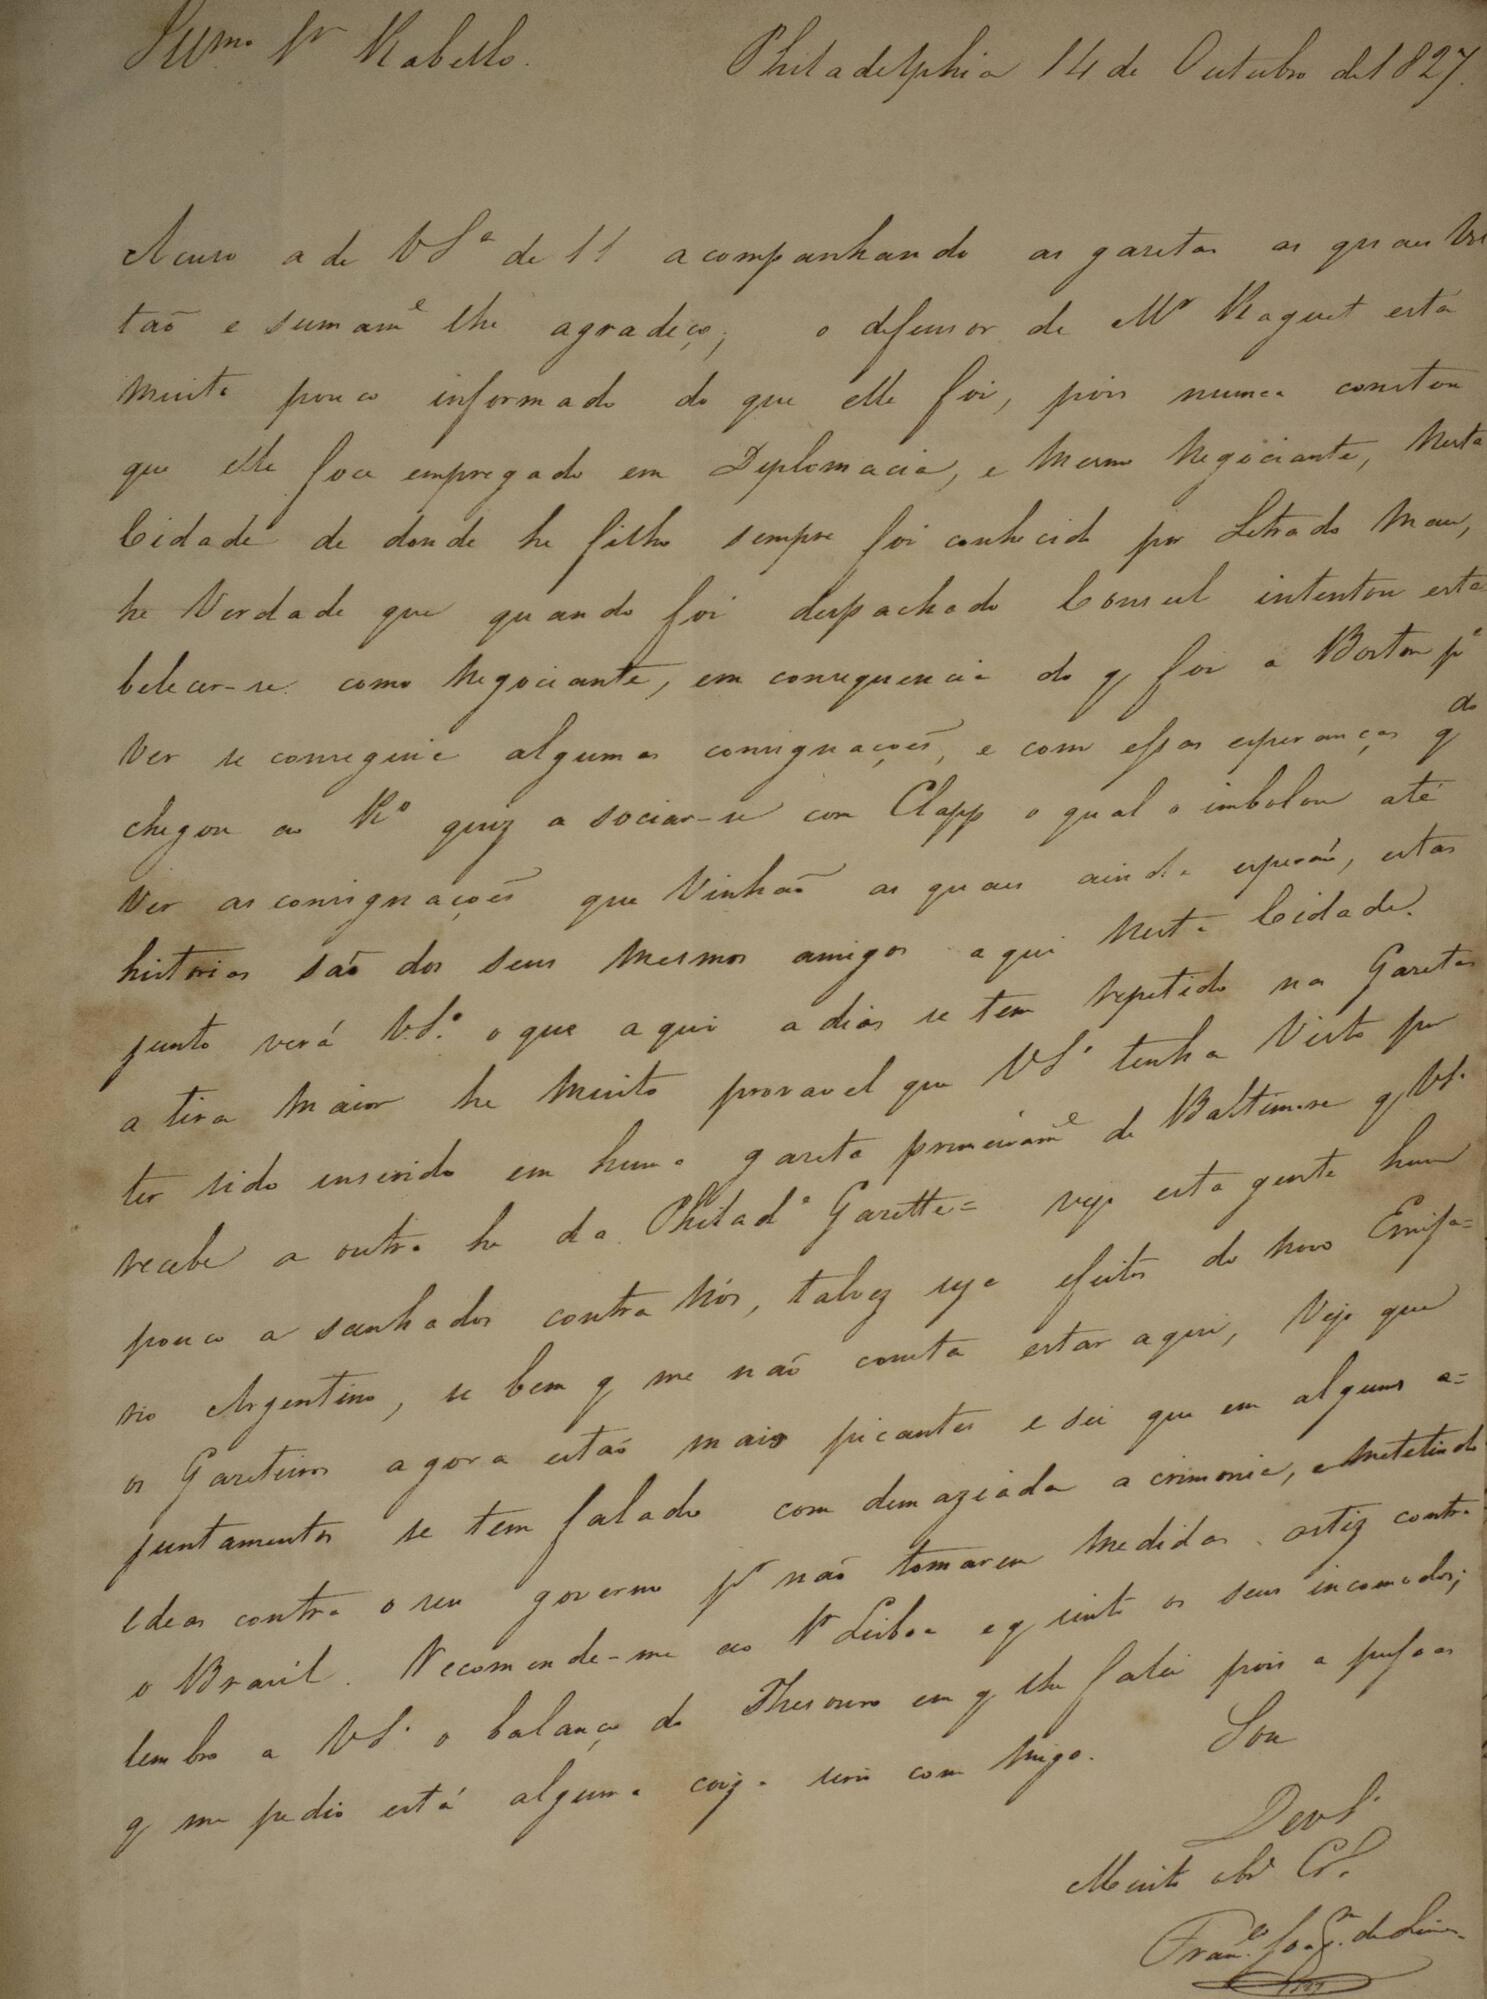 Illmo Sr Rabello.
Philadelphia 14 de Outubro de 1827.
Acuso a de VSa de 11 acompanhando as gazetas as quais
taõ e sumame lhe agradeço; o defensor de Mr Raguet está
muito pouco informado do que elle foi, pois nunca constou
que elle foce empregado em Deplomacia, e mesmo Negociante, nesta
Cidade de donde he filho sempre foi conhecido por Letrado mau,
he verdade que quando foi despachado Consul intentou esta
belecer-se como negociante, em consequencia do q foi a Boston pa
ver se conseguia algumas consignações, e com essas esperanças qdo
chegou ao Ro quiz asociar-se com Clapp o qual o imbolou até
ver as consignações que vinhaõ as quais ainda esperaõ, estas
historias saõ dos seus mesmos amigos aqui nesta Cidade.
junto verá V.Sa o que aqui a dias se tem repetido na Gazetas
a tira maior he muito provavel que VSa tenha visto por
ter sido inserido em huma gazeta primeirame de Baltimore q VSa
recebe a outra he da Philada Gazette= vejo esta gente hum
pouco asanhados contra nós, talvez seja efeitos do novo Emissa=
rio Argentino, se bem q me naõ consta estar aqui, vejo que
os Gazeteiros agora estaõ mais picantes e sei que em alguns a=
juntamentos se tem falado com demaziada acrimonia, e metetindo
ideas contra o seu governo pr naõ tomarem medidas contra
o Brazil. Recomende-me ao Sr Lisboa e q sinto os seus incomodos;
lembro a VSa o balanço do Thesouro em q lhe falei pois a pessoas
q me pedio está alguma coiza seria com migo. Sou
De VSa
Muito obr Cro
Franco Joaqm de Lima